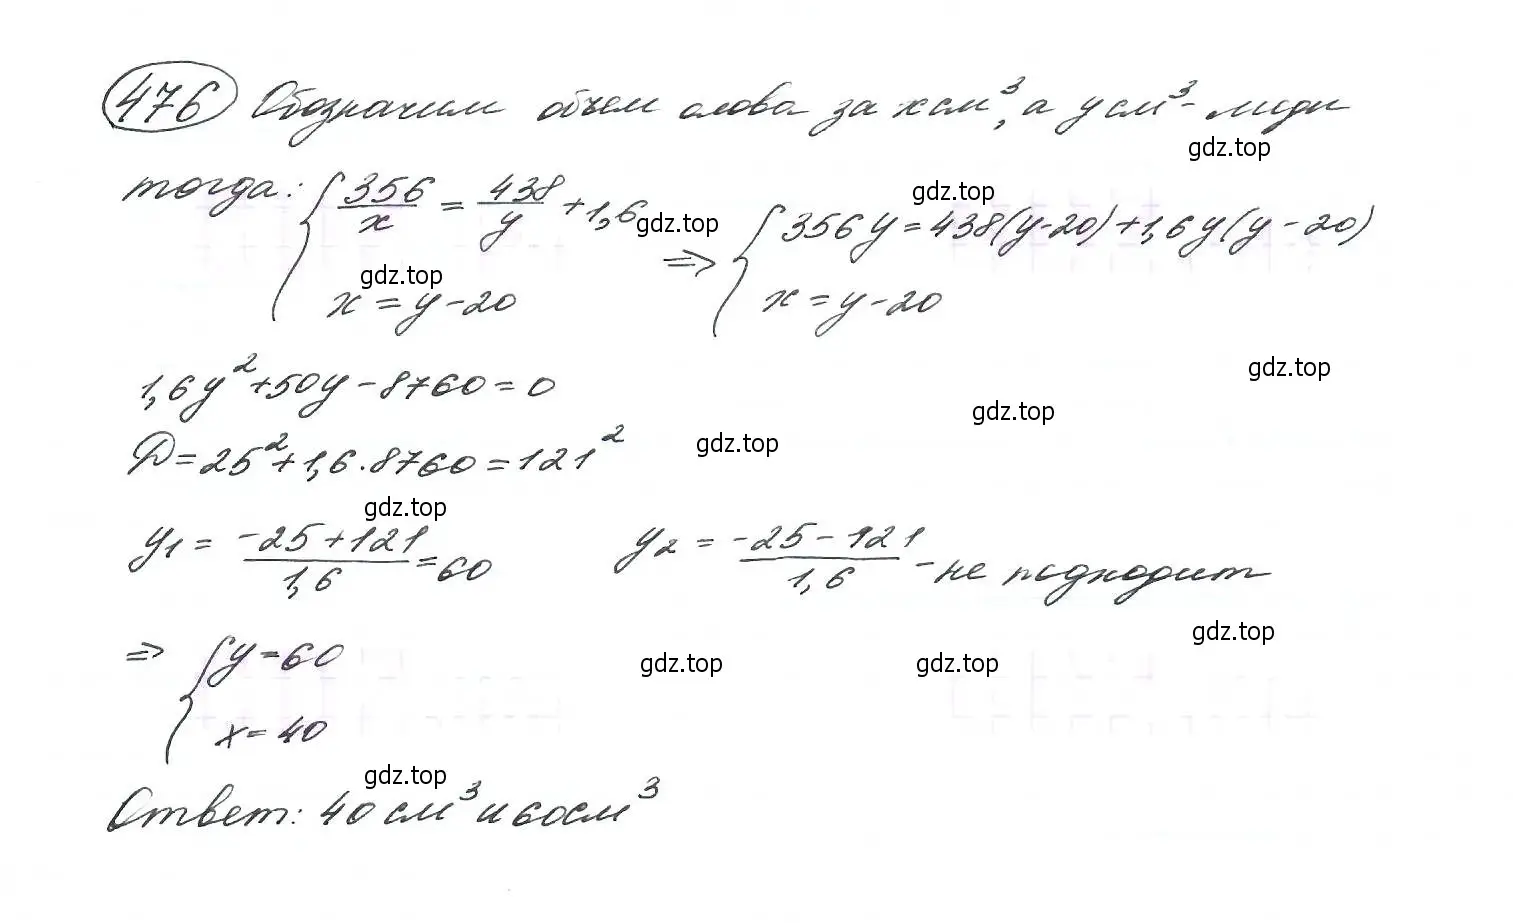 476 Обозначим объем олова за x см³, а y см³ - меди
gdz.top
тогда: { 356/x = 438/y + 1,6 gdz.top ⇒ { 356y = 438(y-20) + 1,6y(y-20) gdz.top
gdz.top
x = y - 20 x = y - 20
1,6y² + 50y - 8760 = 0 gdz.top
gdz.top
D = 25² + 1,6·8760 = 121² gdz.top
gdz.top
y₁ = (-25+121)/1,6 = 60 y₂ = (-25-121)/1,6 - не подходит
gdz.top
⇒ { y = 60 gdz.top gdz.top
x = 40
gdz.top
Ответ: 40 см³ и 60 см³